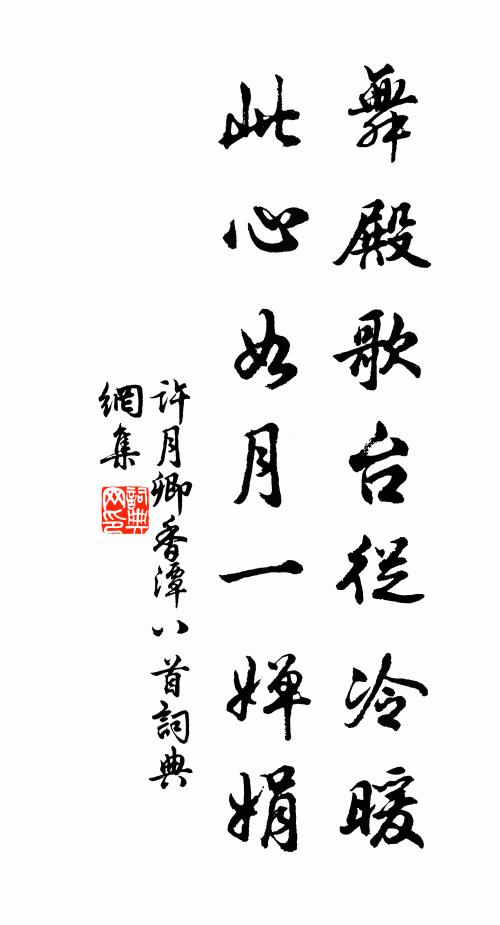 舞殿歌台從冷暖
此心如月一嬋娟
許月卿香潭八首詞典
網集
詞典網印